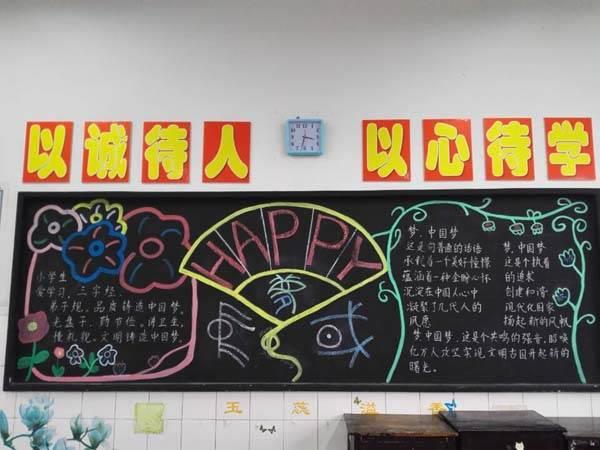 以诚待人
以心待学
HAPPY
小学生
爱学习,三字经
弟子规,品质铸造中国梦,
勤节俭,讲卫生,
懂礼貌,文明铸造中国梦。
梦,中国梦
这是句普通的话语
承载着一个美好憧憬
蕴涵着一种企盼心怀
沉淀在中国人心中
凝聚了几代人的
夙愿
梦,中国梦
这是个执着
的请求
创建和谐
现代化国家
扬起新的风帆
梦中国梦,这是个共鸣的强音,昭唤
亿万人实现,文明古国开起新的
曙光。
玉蕊溢香